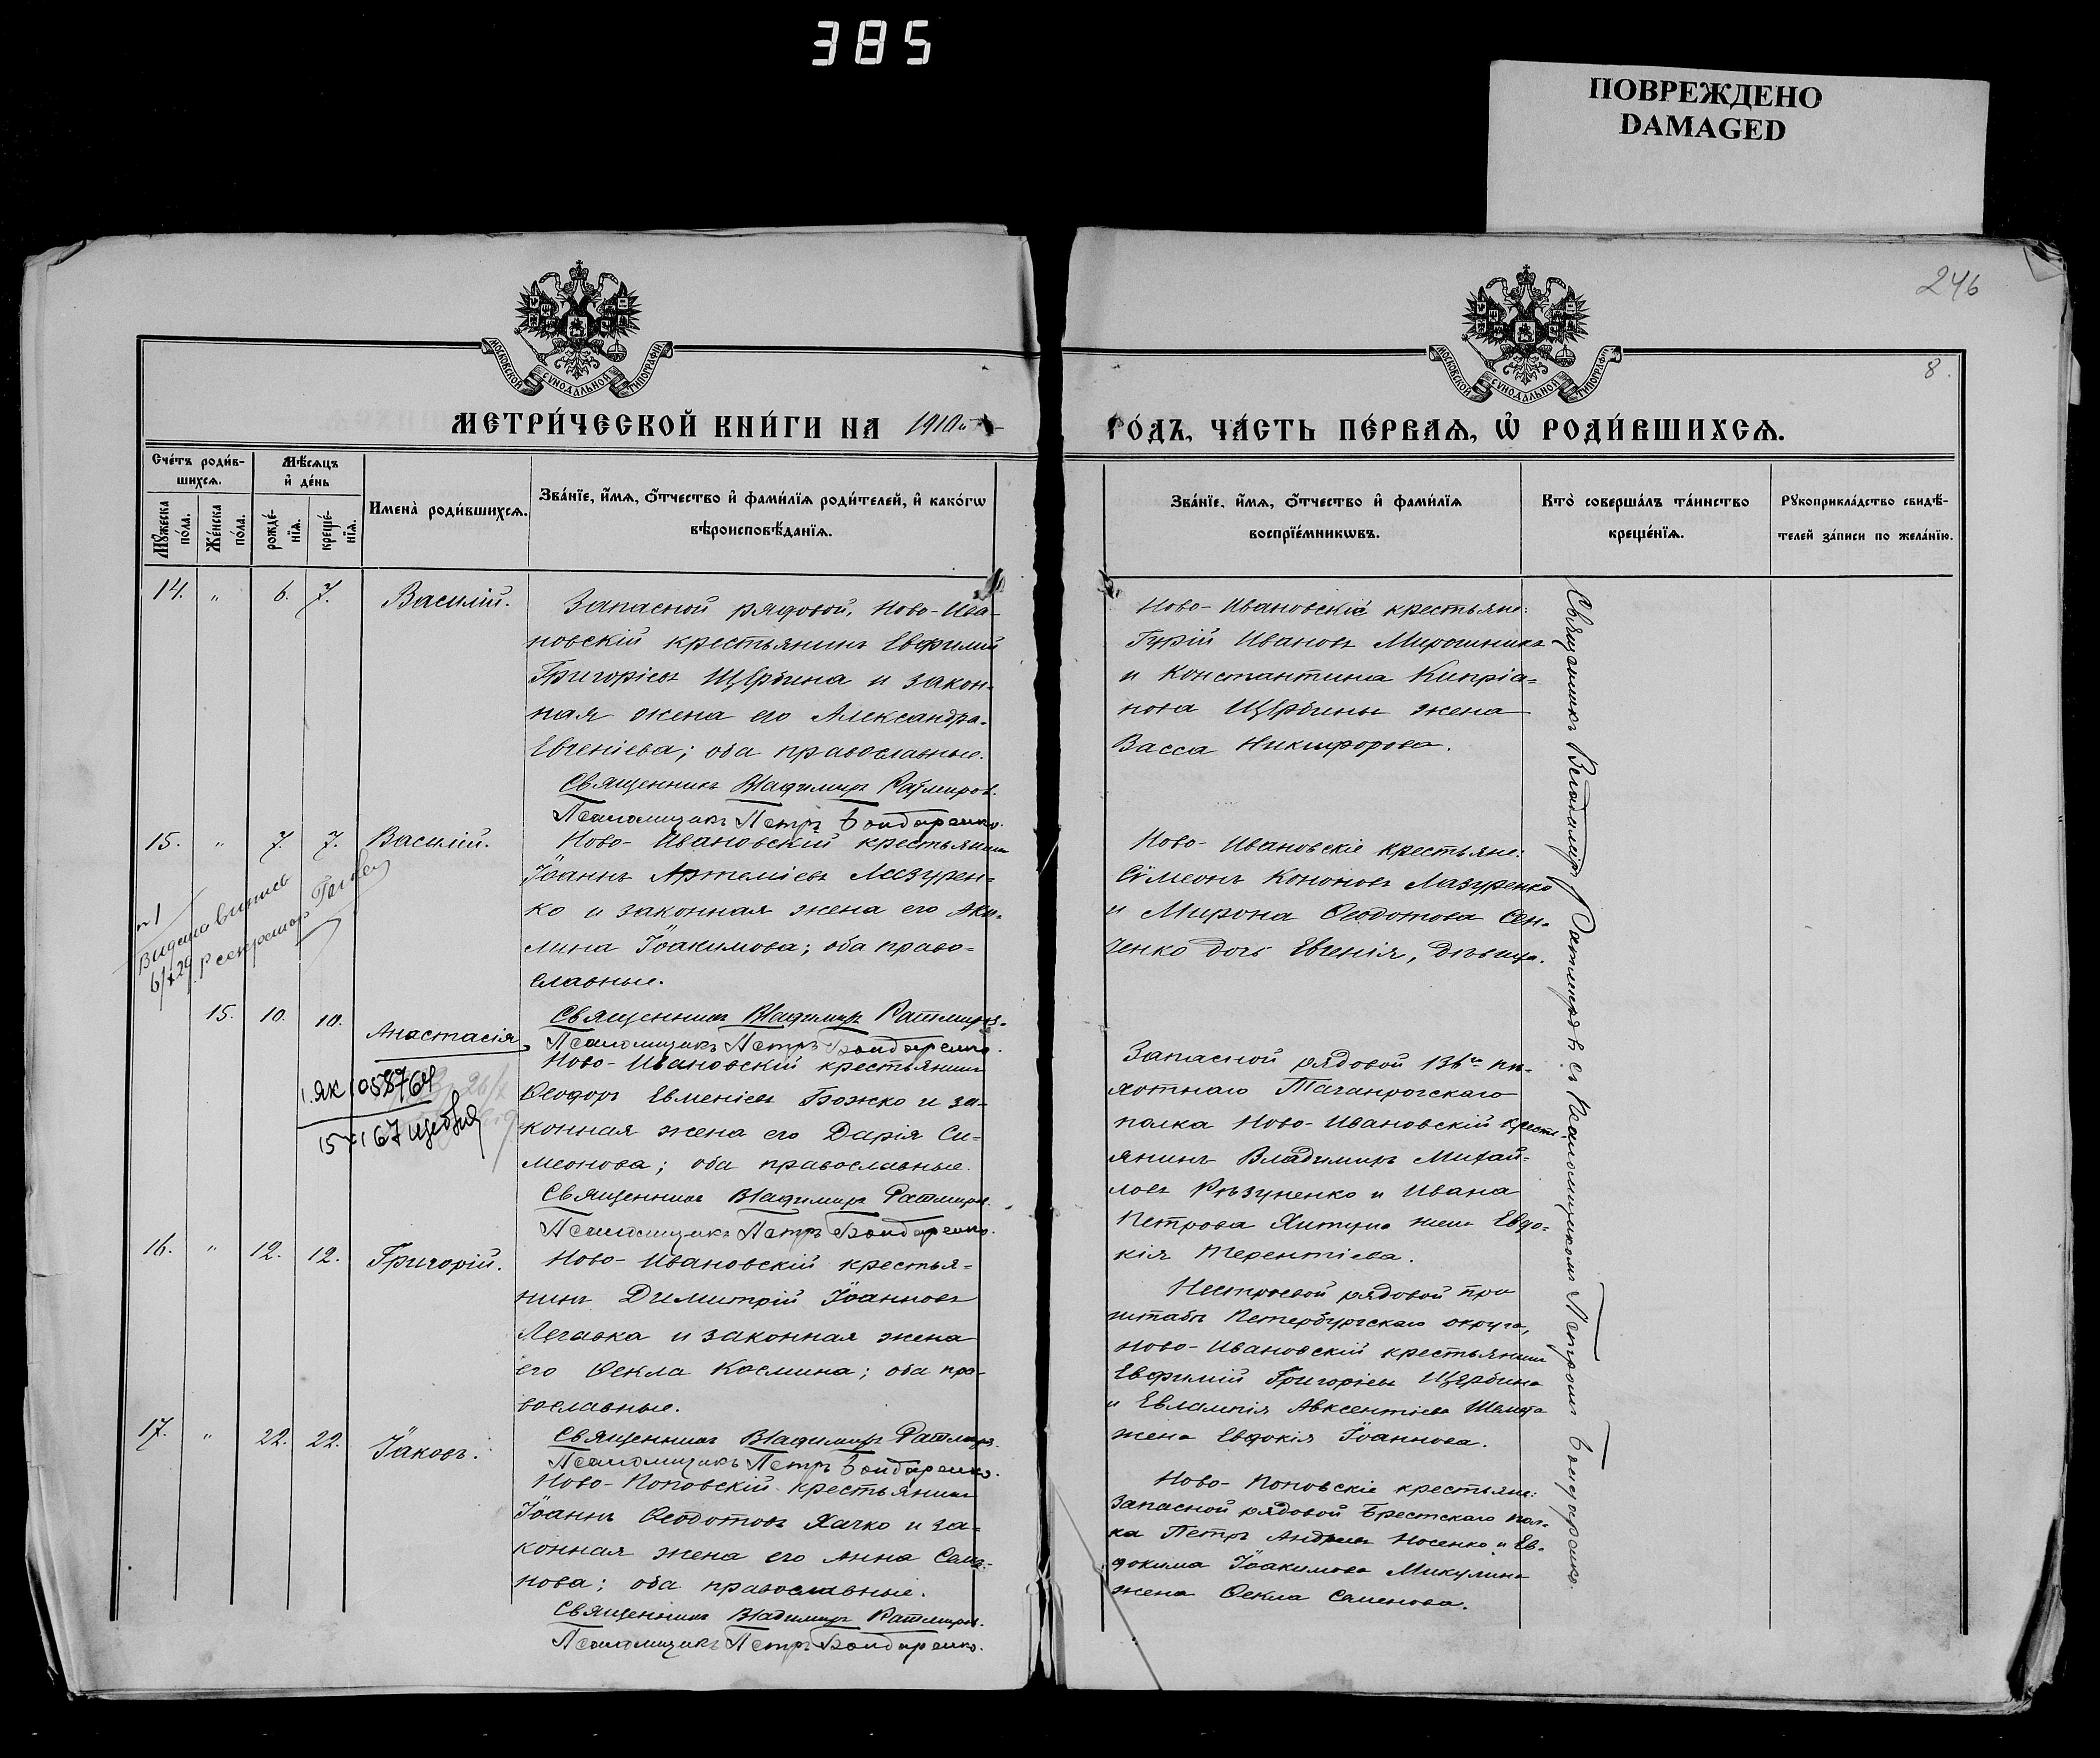 385
ПОВРЕЖДЕНО
DAMAGED
246
8.
МОСКОВСКОЙ СѴНОДАЛЬНОЙ ТИПОГРАФІИ
МОСКОВСКОЙ СѴНОДАЛЬНОЙ ТИПОГРАФІИ
МЕТРИ́ЧЕСКОЙ КНИ́ГИ НА 1910й
ГО́ДЪ, ЧА́СТЬ ПЕ́РВАѦ, Ѡ҆ РОДИ́ВШИХСѦ.
Сче́тъ роди́в-
шихсѧ.
Мѣ́сѧцъ
и҆ де́нь
Мꙋ́жеска по́ла.
Же́нска по́ла.
рожде́-
нїѧ.
креще́-
нїѧ.
Имена̀ роди́вшихсѧ.
Зва́нїе, и҆́мѧ, ѻ҆́тчество и҆ фами́лїѧ роди́телей, и҆ како́гѡ
вѣроисповѣ́данїѧ.
Зва́нїе, и҆́мѧ, ѻ҆́тчество и҆ фами́лїѧ
воспрїе́мникѡвъ.
Кто̀ соверша́лъ та́инство
креще́нїѧ.
Рꙋкоприкла́дство свидѣ́-
телей за́писи по жела́нїю.
14. " 6. 7. Василій.
Запасной рядовой, Ново-Ива-
новскій крестьянинъ Евфимій
Григоріевъ Щербина и закон-
ная жена его Александра
Евгеніева; оба православные.
Священникъ Владимиръ Ратмиров.
Псаломщикъ Петръ Бондаренко.
Ново-Ивановскіе крестьяне:
Гурій Ивановъ Мирошникъ
и Константина Кипріа-
нова Щербины жена
Васса Никифорова.
15. " 7. 7. Василій.
Ново-Ивановскій крестьянинъ
Іоаннъ Артеміевъ Лазурен-
ко и законная жена его Аки-
лина Іоакимова; оба право-
славные.
Священникъ Владимиръ Ратмиров.
Псаломщикъ Петръ Бондаренко.
Ново-Ивановскіе крестьяне:
Сѵмеонъ Кононовъ Лазуренко
и Мирона Ѳеодотова Сен-
ченко дочь Евгенія, дѣвица.
15. 10. 10. Анастасія
Ново-Ивановскій крестьянинъ
Ѳеодоръ Евменіевъ Божко и за-
конная жена его Дарія Си-
меонова; оба православные.
Священникъ Владимиръ Ратмиров.
Псаломщикъ Петръ Бондаренко.
Запасной рядовой 136го пѣ-
хотнаго Таганрогскаго
полка Ново-Ивановскій кресть-
янинъ Владимиръ Михай-
ловъ Рѣзуненко и Ивана
Петрова жена Евдо-
кія Терентіева.
I. ЯК 1058764
16. " 12. 12. Григорій.
Ново-Ивановскій крестья-
нинъ Димитрій Іоанновъ
Легавка и законная жена
его Ѳекла Космина; оба пра-
вославные.
Священникъ Владимиръ Ратмиров.
Псаломщикъ Петръ Бондаренко.
Нестроевой рядовой при
штабѣ Петербургскаго округа,
Ново-Ивановскій крестьянинъ
Евфимій Григоріевъ Щербина
и Евлампія Авксентіева
жена Евдокія Іоаннова.
17. " 22. 22. Іаковъ.
Ново-Поповскій крестьянинъ
Іоаннъ Ѳеодотовъ Хачко и за-
конная жена его Анна
нова; оба православные.
Священникъ Владимиръ Ратмиров.
Псаломщикъ Петръ Бондаренко.
Ново-Поповскіе крестьяне:
Запасной рядовой Брестскаго пол-
ка Петръ Андреевъ Носенко и Ев-
докима Іоакимова Микулина
жена Ѳекла Семенова.
Священникъ Владиміръ Ратмировъ съ Псаломщикомъ Петромъ Бондаренко.